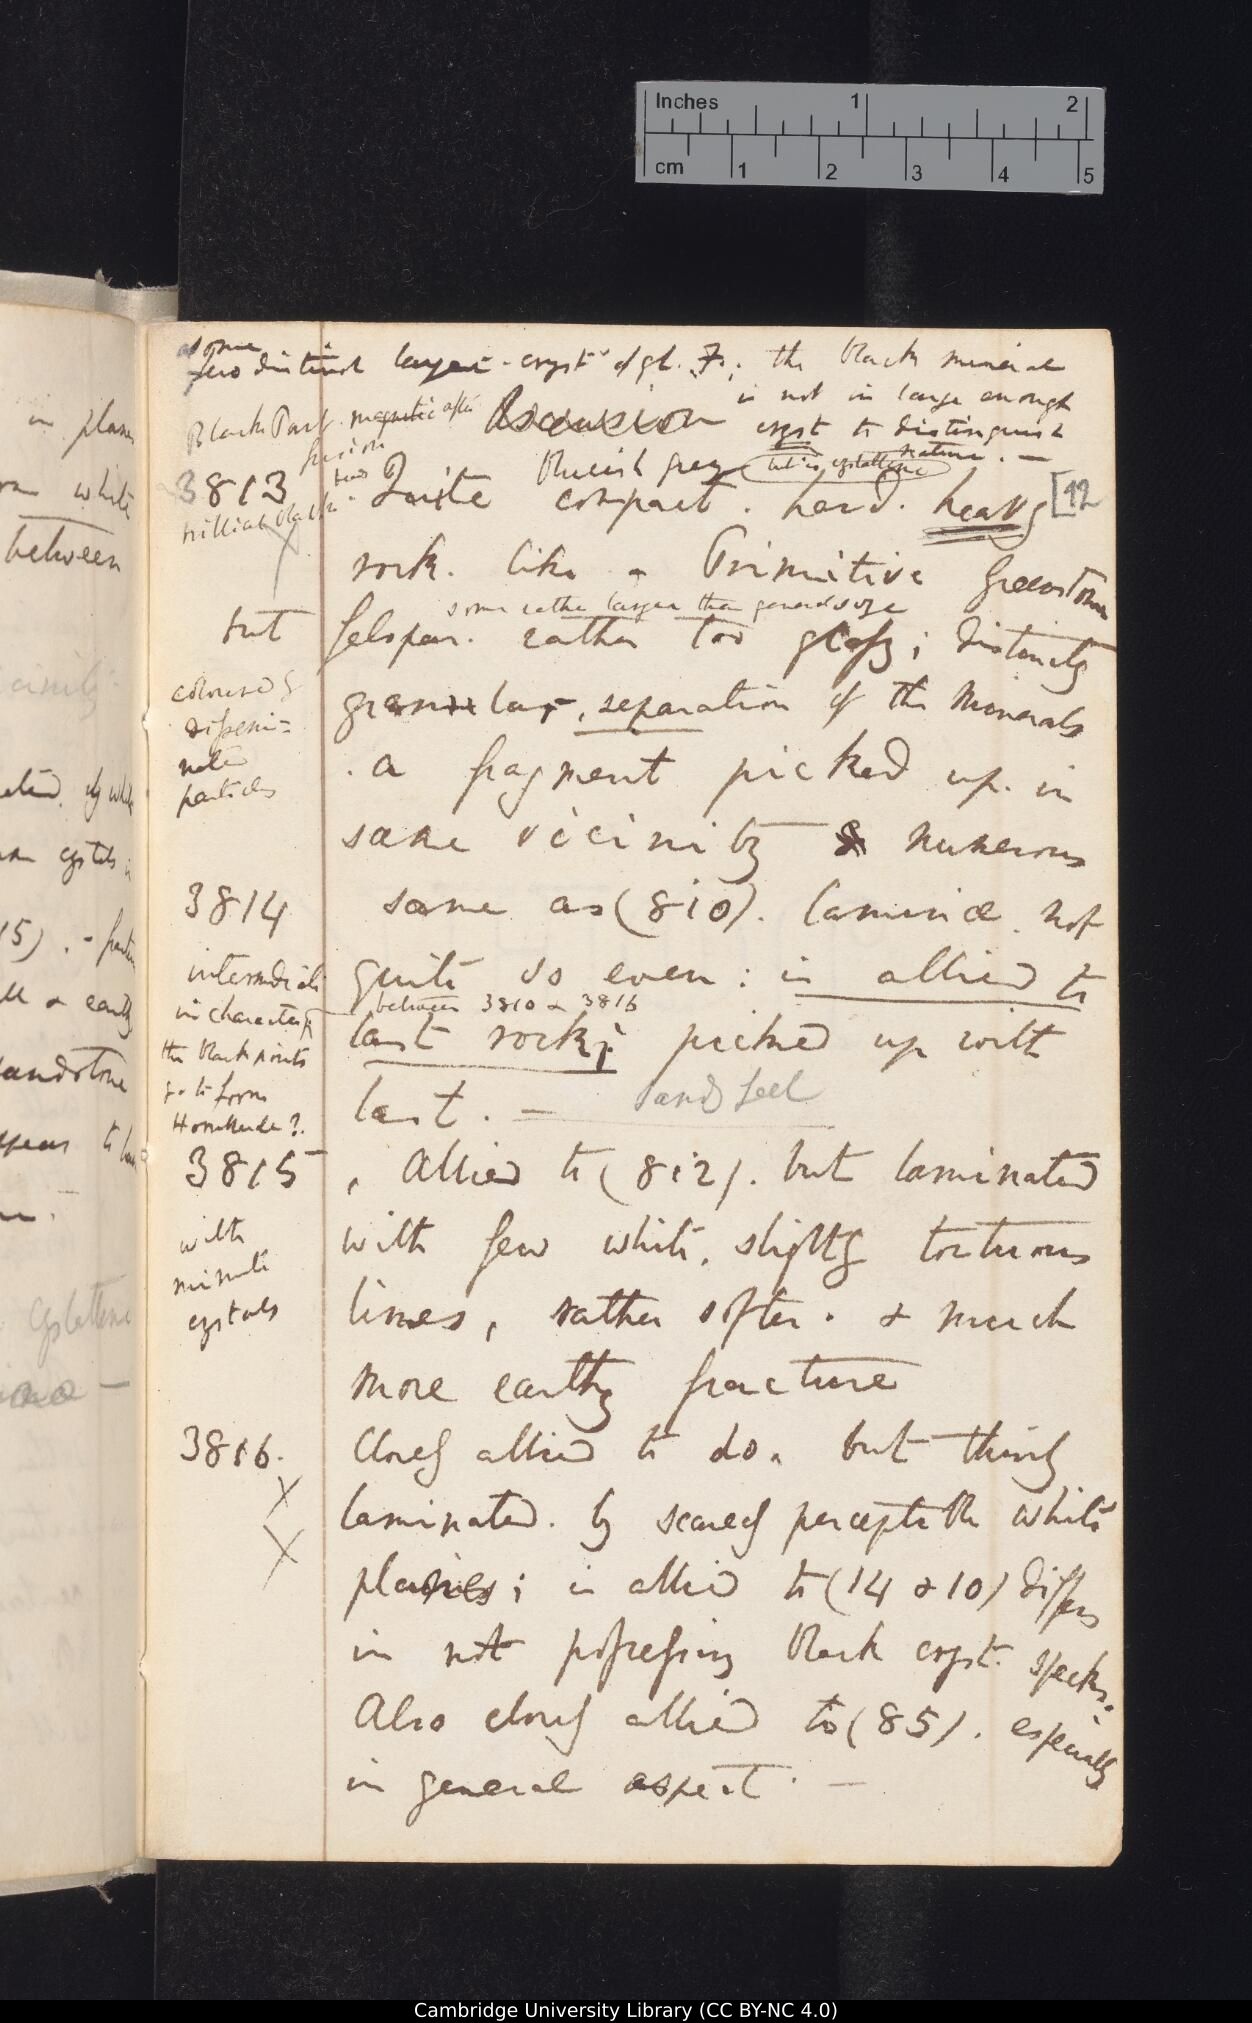 Inches 1 2
cm 1 2 3 4 5
some
few distinct larger cryst of gl. F.; the black mineral
is not in large enough
Black Part. magnetic after Ascension cryst to distinguish
fusion nature. —
Blueish grey
3813 . Quite compact. hard. heavy [12
brilliant black
rock. like a Primitive Greenstone
some rather larger than general size
but felspar. rather too glassy; distinctly
coloured &
granular, separation of the minerals
dissemi=
nated
. a fragment picked up in
particles
same vicinity & numerous
3814 same as (810). laminæ not
intermediate quite so even: is allied to
in character between 3810 & 3816
last rock; picked up with
the black points
go to form last. — Sand feel
Hornblende?.
3815 , Allied to (812). but laminated
with with few white, slightly tortuous
minute
crystals lines, rather softer. & much
more earthy fracture
3816. Closely allied to do. but thinly
X laminated. by scarcely perceptible white
X planes; is allied to (14 & 10) differs
in not possessing black cryst. specks.
Also closely allied to (85). especially
in general aspect. —
in planes
white
between
vicinity
crystals in
15). -
& earthy
Sandstone
appears to
crystalline
Cambridge University Library (CC BY-NC 4.0)